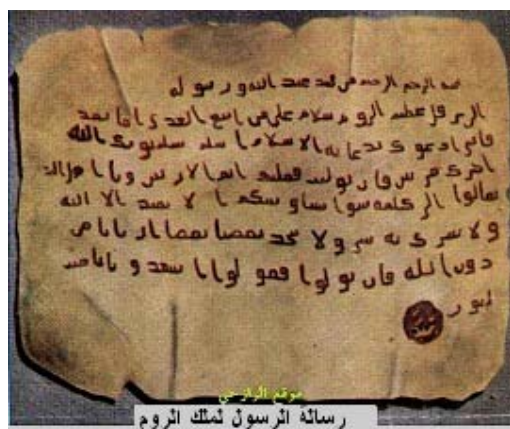 الرحمن الرحيم من محمد عبد الله ورسوله
الى هرقل عظيم الروم سلام على من اتبع الهدى اما بعد
فانى ادعوك بدعاية الاسلام اسلم تسلم يوتك الله
اجرك مرتين فان توليت فعليك اثم ويا اهل
تعالوا الى كلمة سوا بيننا وبينكم الا نعبد الا الله
ولا نشرك به ولا يتخذ بعضنا بعضا اربابا من
دون الله فان تولوا فقولوا اشهدوا بانا
موقع
رسالة الرسول لملك الروم